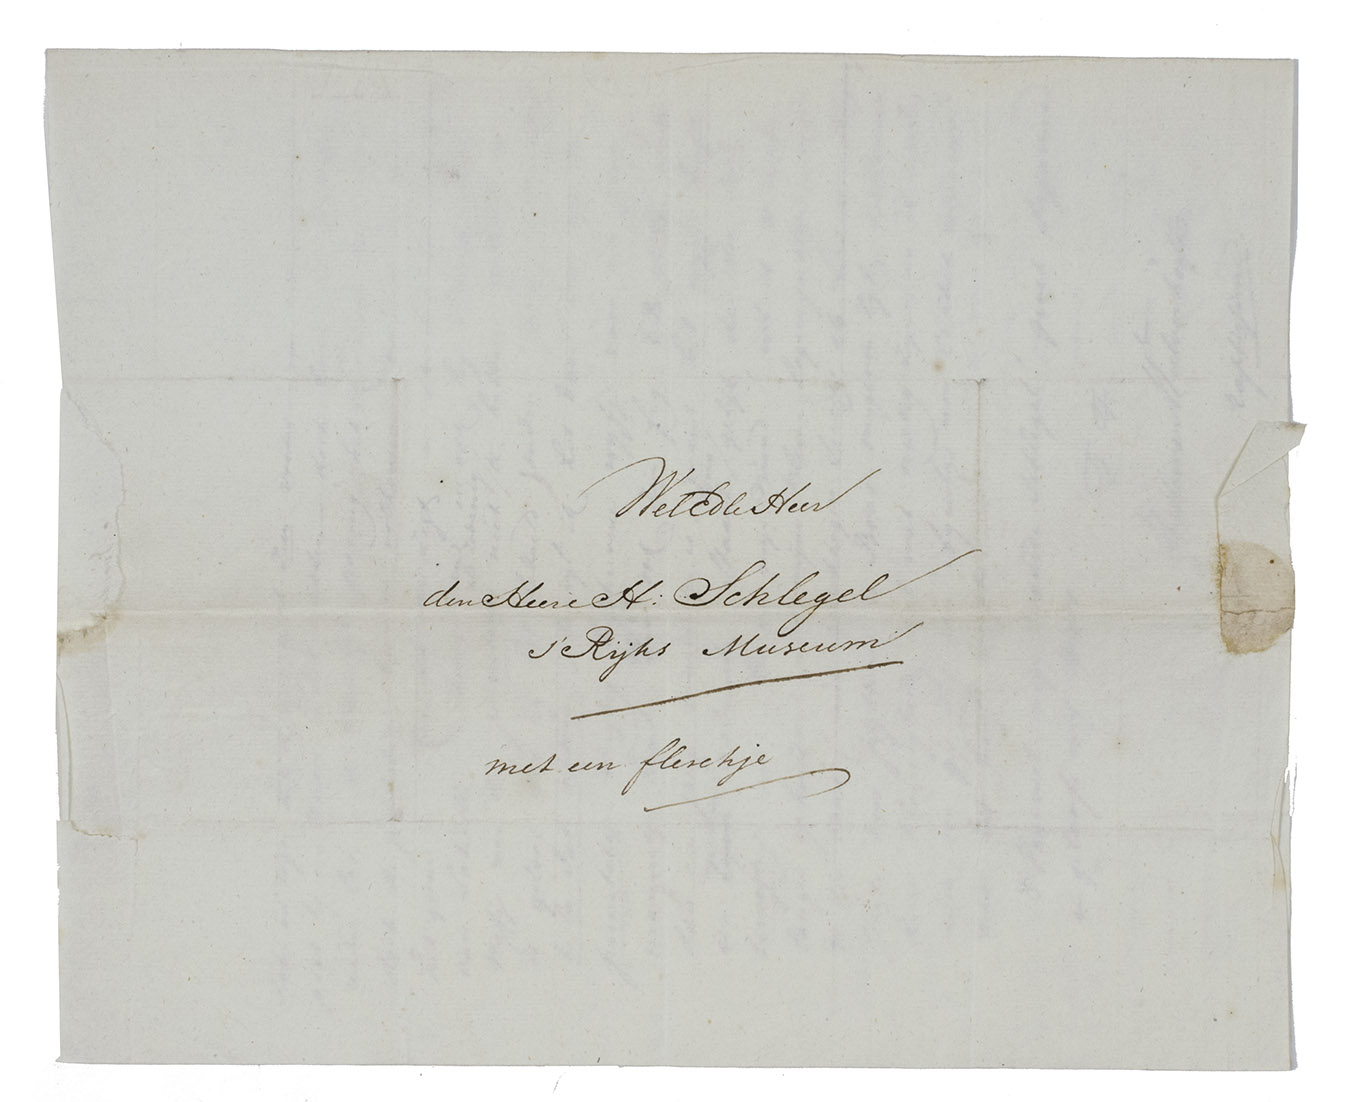 WelEdle Heer
den Heere H: Schlegel
s' Rijks Museum
met een fleschje